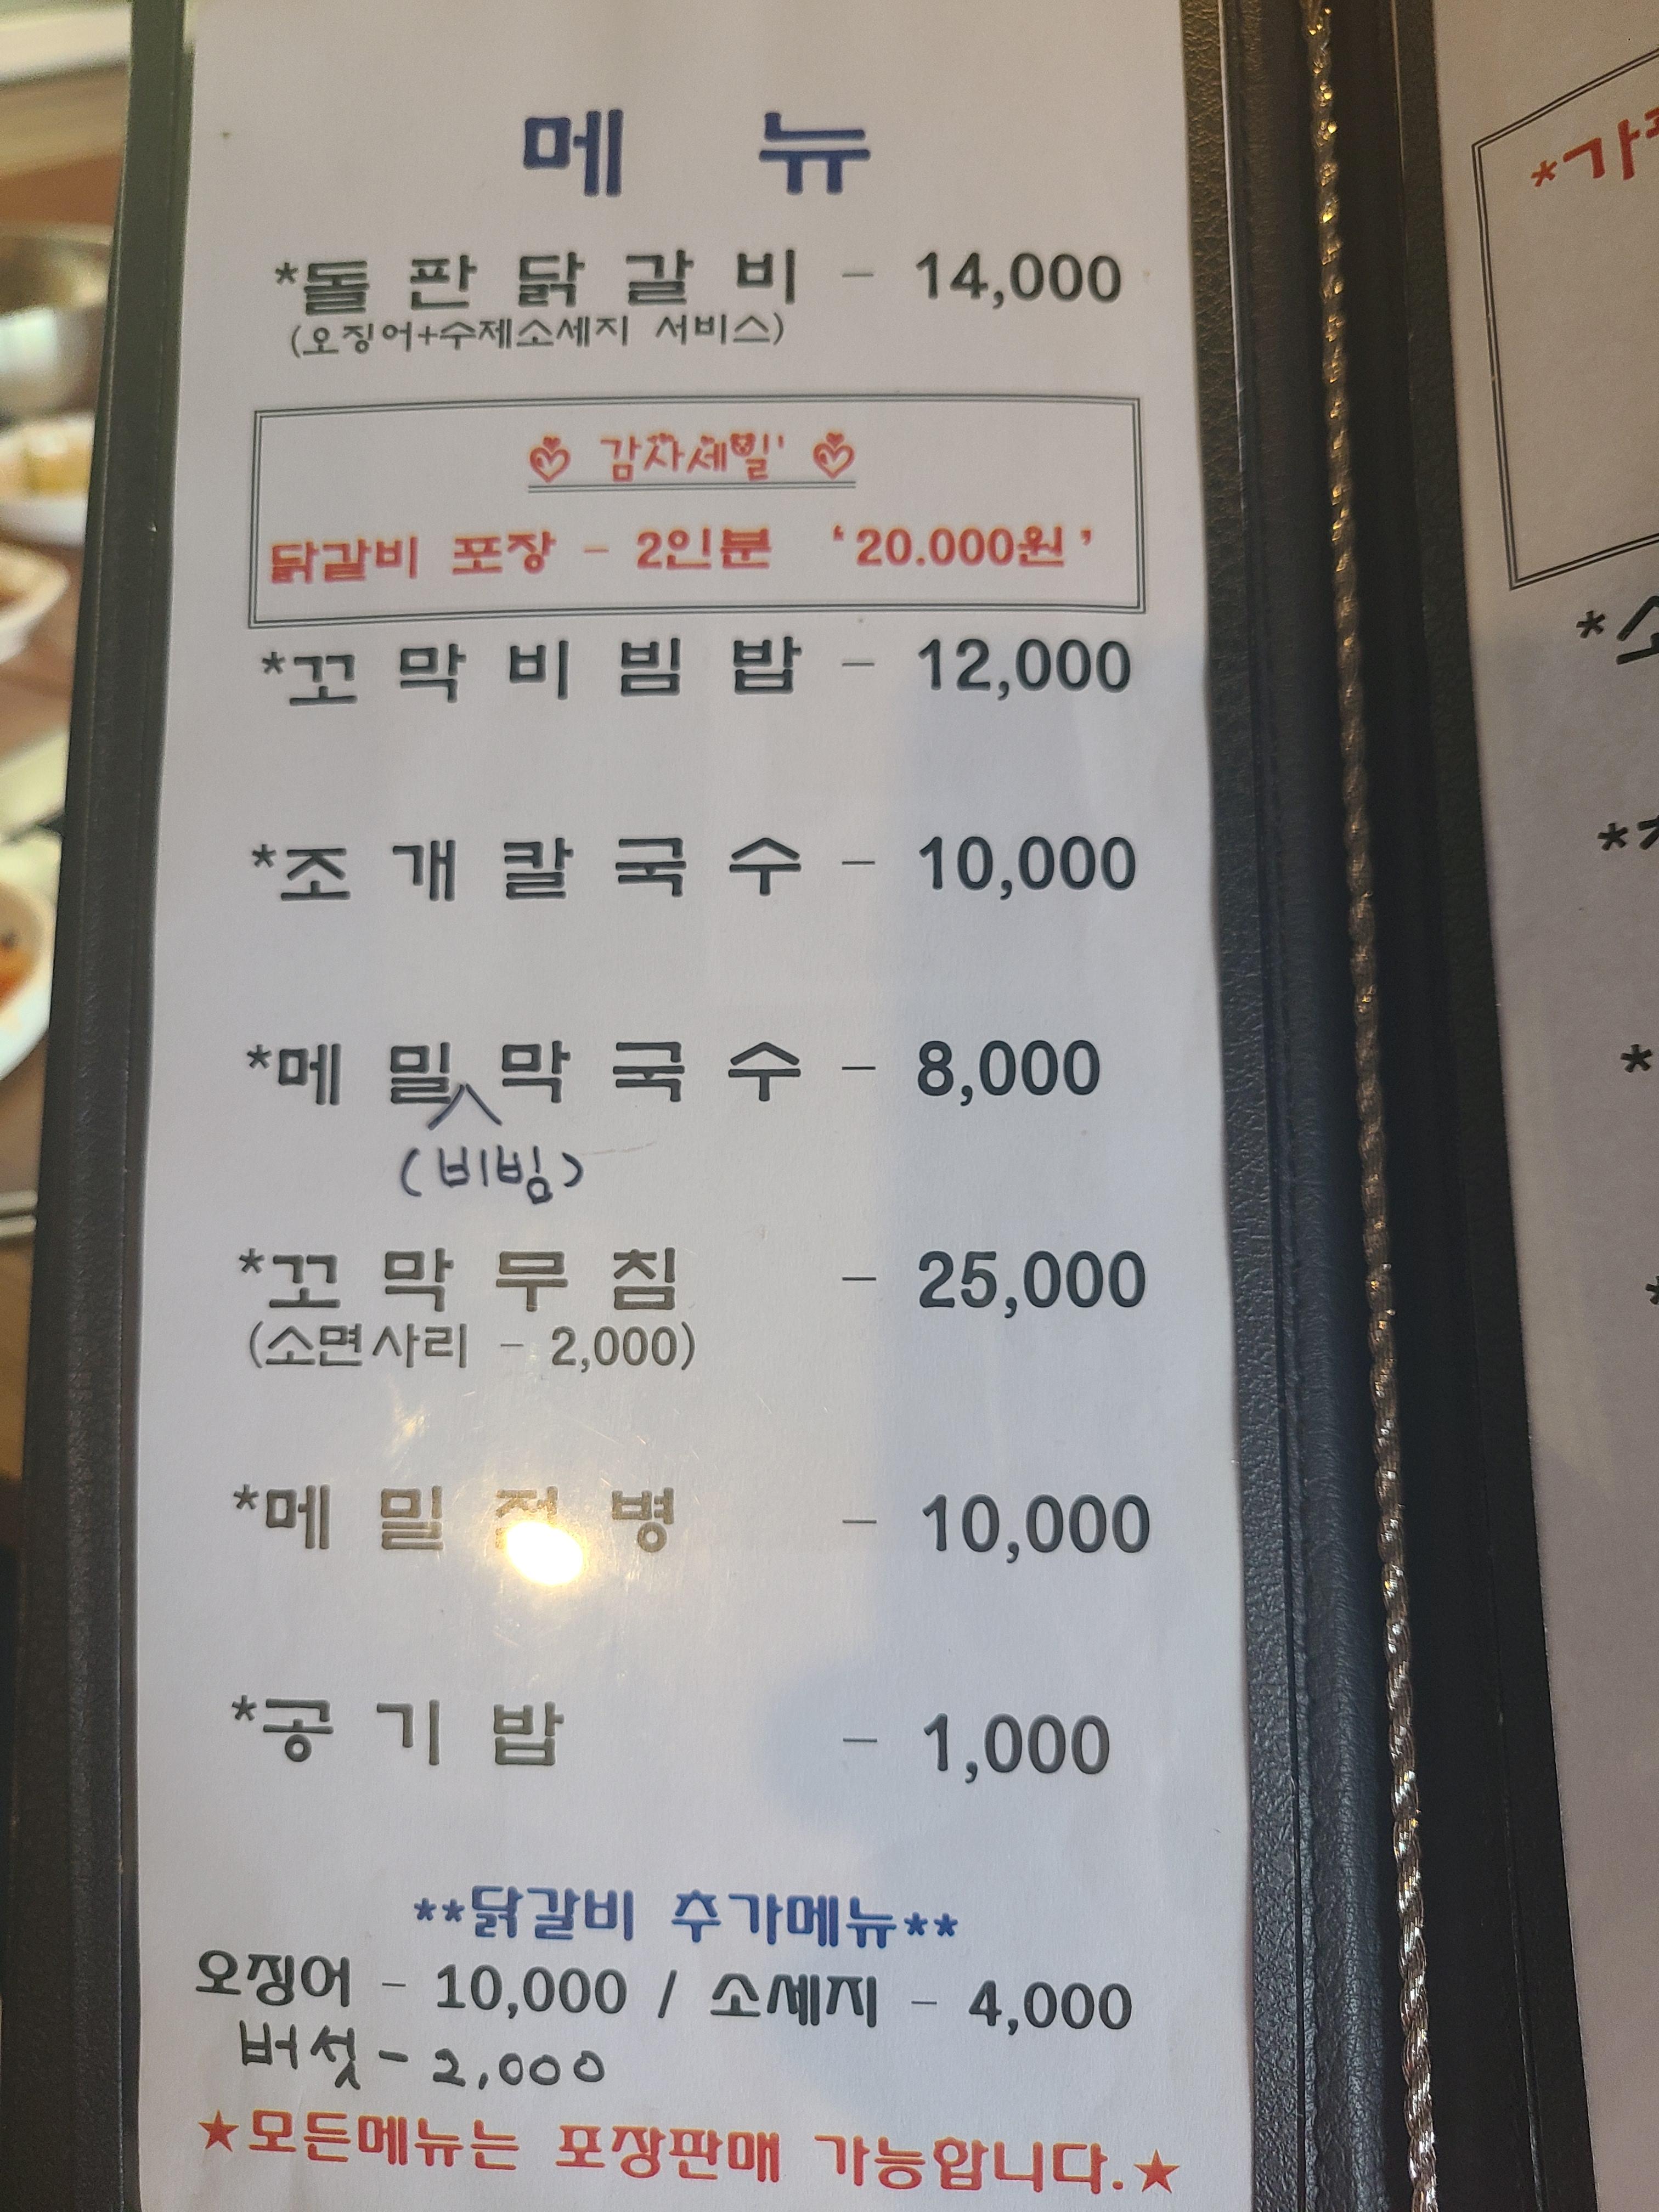 메 뉴
*돌 판 닭 갈 비 - 14,000
(오징어+수제소세지 서비스)
감사세일'
닭갈비 포장 - 2인분 '20.000원'
*꼬 막 비 빔 밥 - 12,000
*조 개 칼 국 수 - 10,000
*메 밀 막 국 수 - 8,000
(비빔)
*꼬 막 무 침 - 25,000
(소면사리 - 2,000)
*메 밀 전 병 - 10,000
*공 기 밥 - 1,000
**닭갈비 추가메뉴**
오징어 - 10,000 / 소세지 - 4,000
버섯 - 2,000
★모든메뉴는 포장판매 가능합니다.★